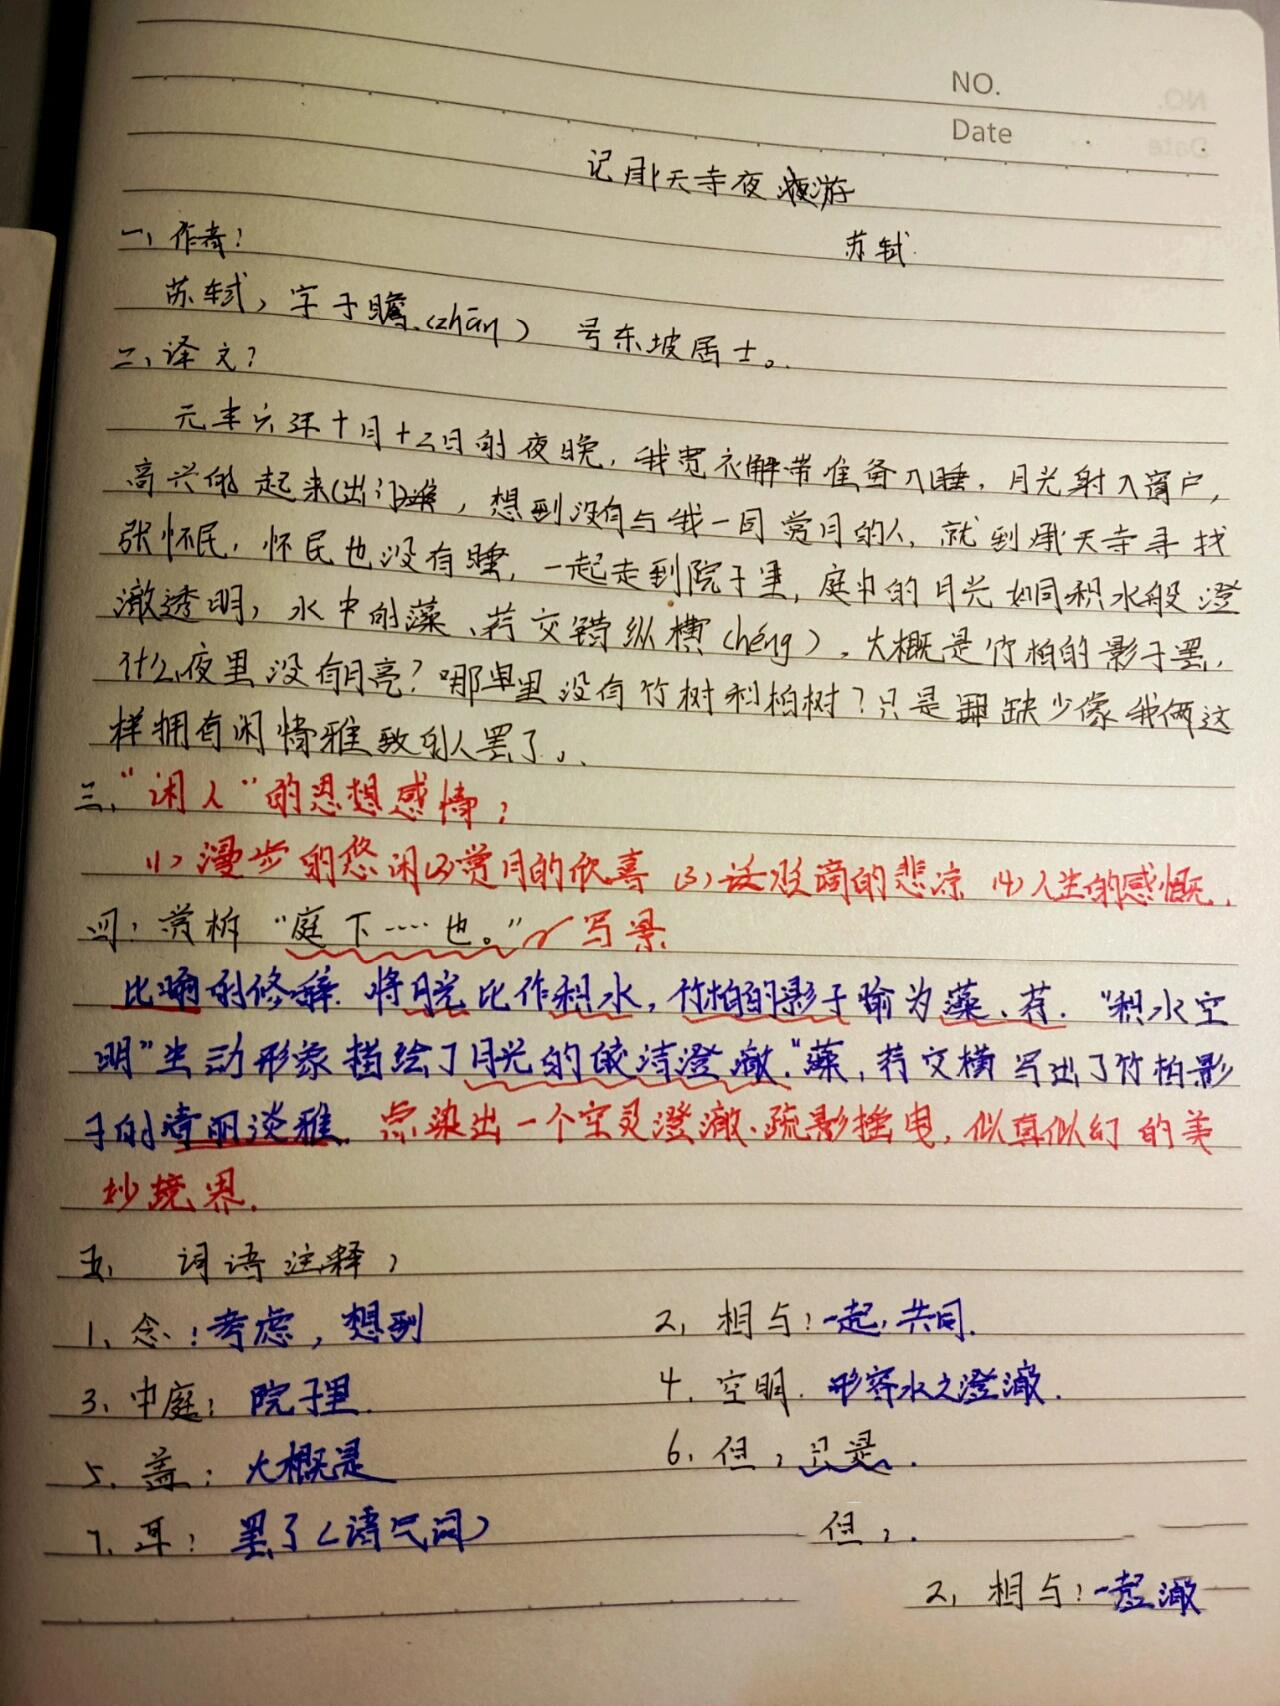 NO.
Date
记承天寺夜游
一、作者：
苏轼
苏轼，字子瞻（zhān） 号东坡居士。
二、译文？
元丰六年十月十二日的夜晚，我宽衣解带准备入睡，月光射入窗户，
高兴的起来（出门），想到没有与我一同赏月的人，就到承天寺寻找
张怀民，怀民也没有睡，一起走到院子里，庭中的月光如同积水般澄
澈透明，水中的藻、荇交错纵横（héng），大概是竹柏的影子罢，
什么夜里没有月亮？哪里没有竹树和柏树？只是缺少像我俩这
样拥有闲情雅致的人罢了。
三、“闲人”的思想感情：
（1）漫步的悠闲（2）赏月的欣喜（3）的悲凉（4）人生的感慨.
四：赏析“庭下……也。”写景
比喻的修辞.将月光比作积水，竹柏的影子喻为藻、荇.“积水空
明”生动形象描绘了月光的皎洁澄澈.“藻，荇交横写出了竹柏影
子的清丽淡雅.点染出一个空灵澄澈、疏影摇曳，似真似幻的美
妙境界.
五、词语注释：
1、念：考虑，想到 2、相与：一起，共同.
3、中庭：院子里. 4、空明.形容水之澄澈.
5、盖：大概是 6、但：只是.
7、耳：罢了（语气词） 但：.
2、相与：一起澈